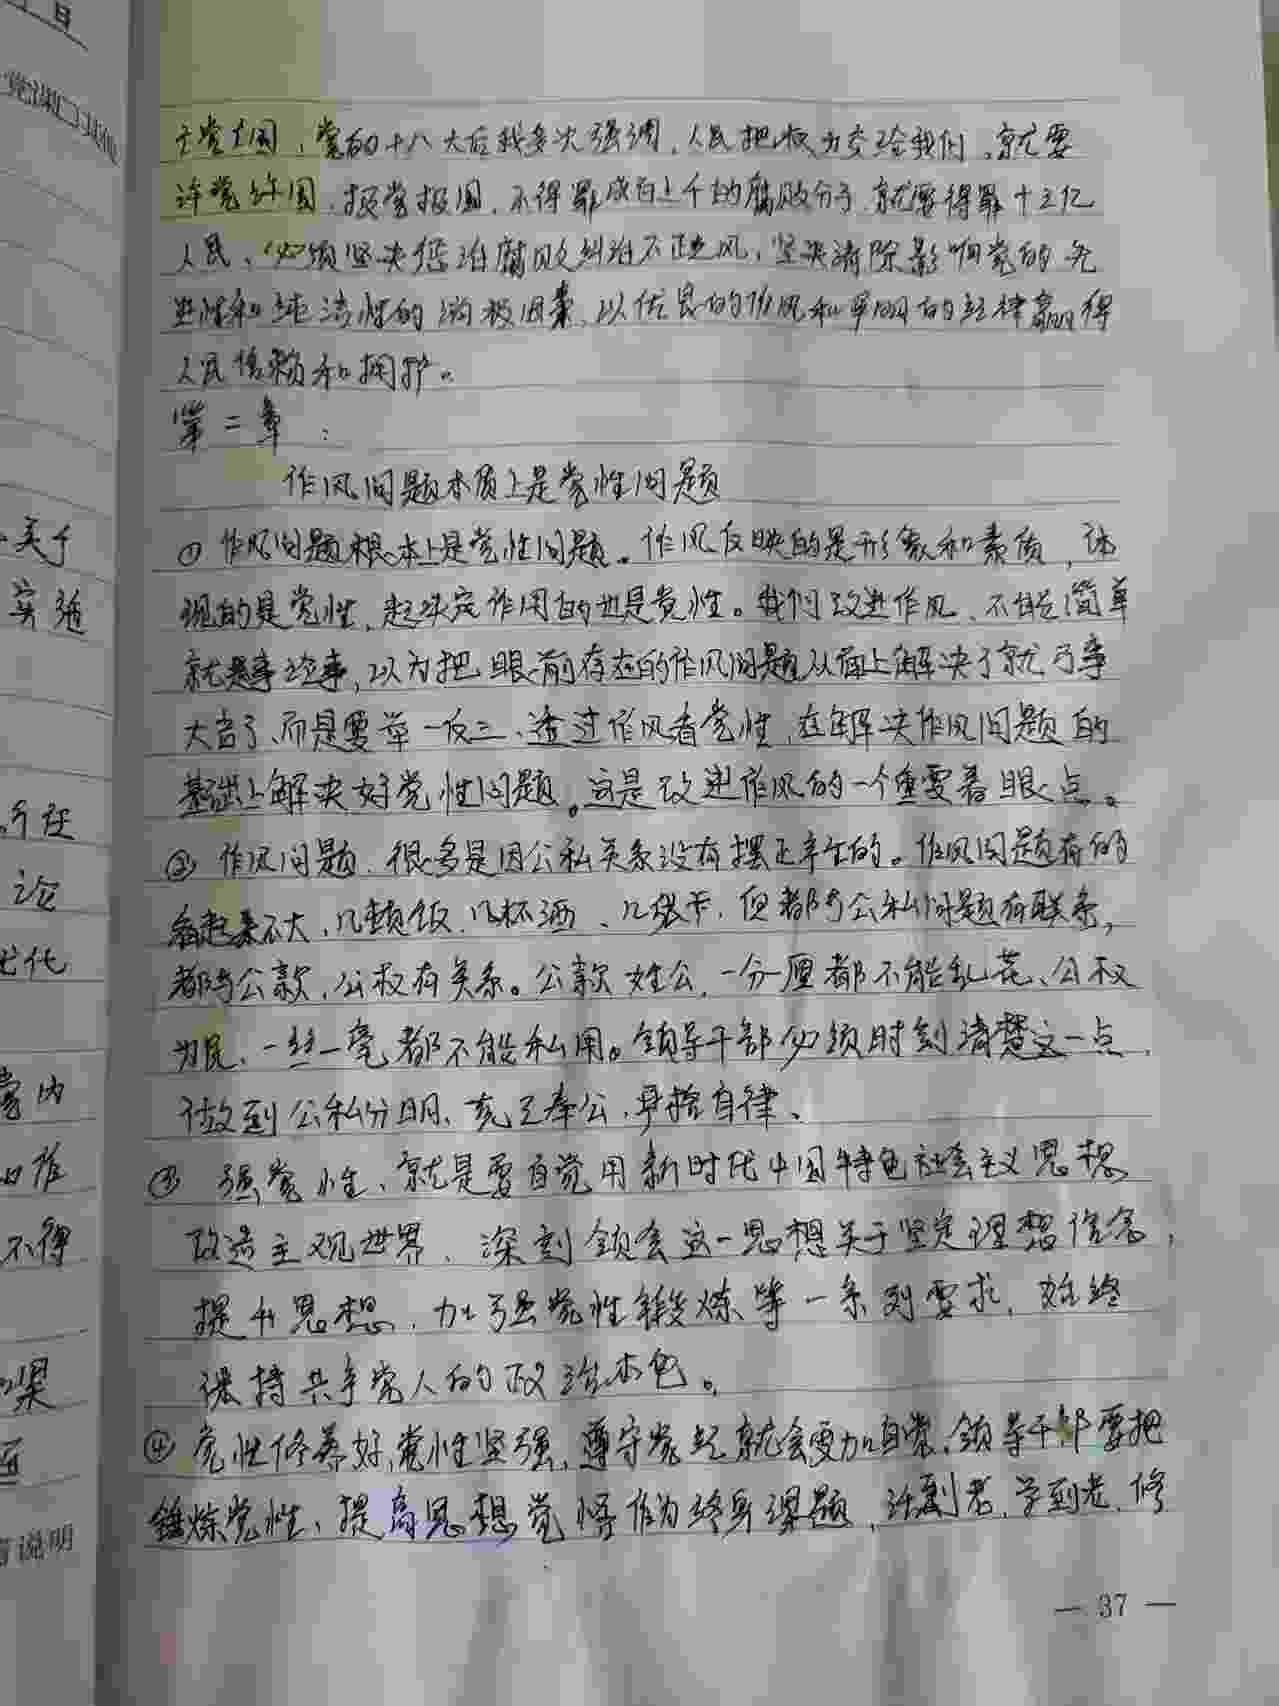 亡党亡国，党的十八大后我多次强调，人民把权力交给我们，就要
许党许国，报党报国，不得罪成百上千的腐败分子，就要得罪十三亿
人民，必须坚决惩治腐败纠治不正之风，坚决清除影响党的先
进性和纯洁性的消极因素，以优良的作风和严明的纪律赢得
人民信赖和拥护。
第二章：
作风问题本质上是党性问题
① 作风问题根本上是党性问题。作风反映的是形象和素质，体
现的是党性，起决定作用的也是党性。我们改进作风，不能简单
就事论事，以为把眼前存在的作风问题从面上解决了就万事
大吉了，而是要举一反三、透过作风看党性，在解决作风问题的
基础上解决好党性问题。这是改进作风的一个重要着眼点。
② 作风问题，很多是因公私关系没有摆正产生的。作风问题有的
看起来不大，几顿饭，几杯酒、几张卡，但都与公私问题有联系，
都与公款，公权有关系。公款姓公，一分一厘都不能乱花、公权
为民，一丝一毫都不能私用。领导干部必须时刻清楚这一点，
做到公私分明、克己奉公，严格自律、
③ 强党性、就是要自觉用新时代中国特色社会主义思想
改造主观世界、深刻领会这一思想关于坚定理想信念，
提升思想，加强党性锻炼等一系列要求，始终
保持共产党人的政治本色。
④ 党性修养好，党性坚强，遵守党纪就会更加自觉，领导干部要把
锤炼党性、提高思想觉悟作为终身课题，活到老，学到老，修
— 37 —
关于
不得
说明